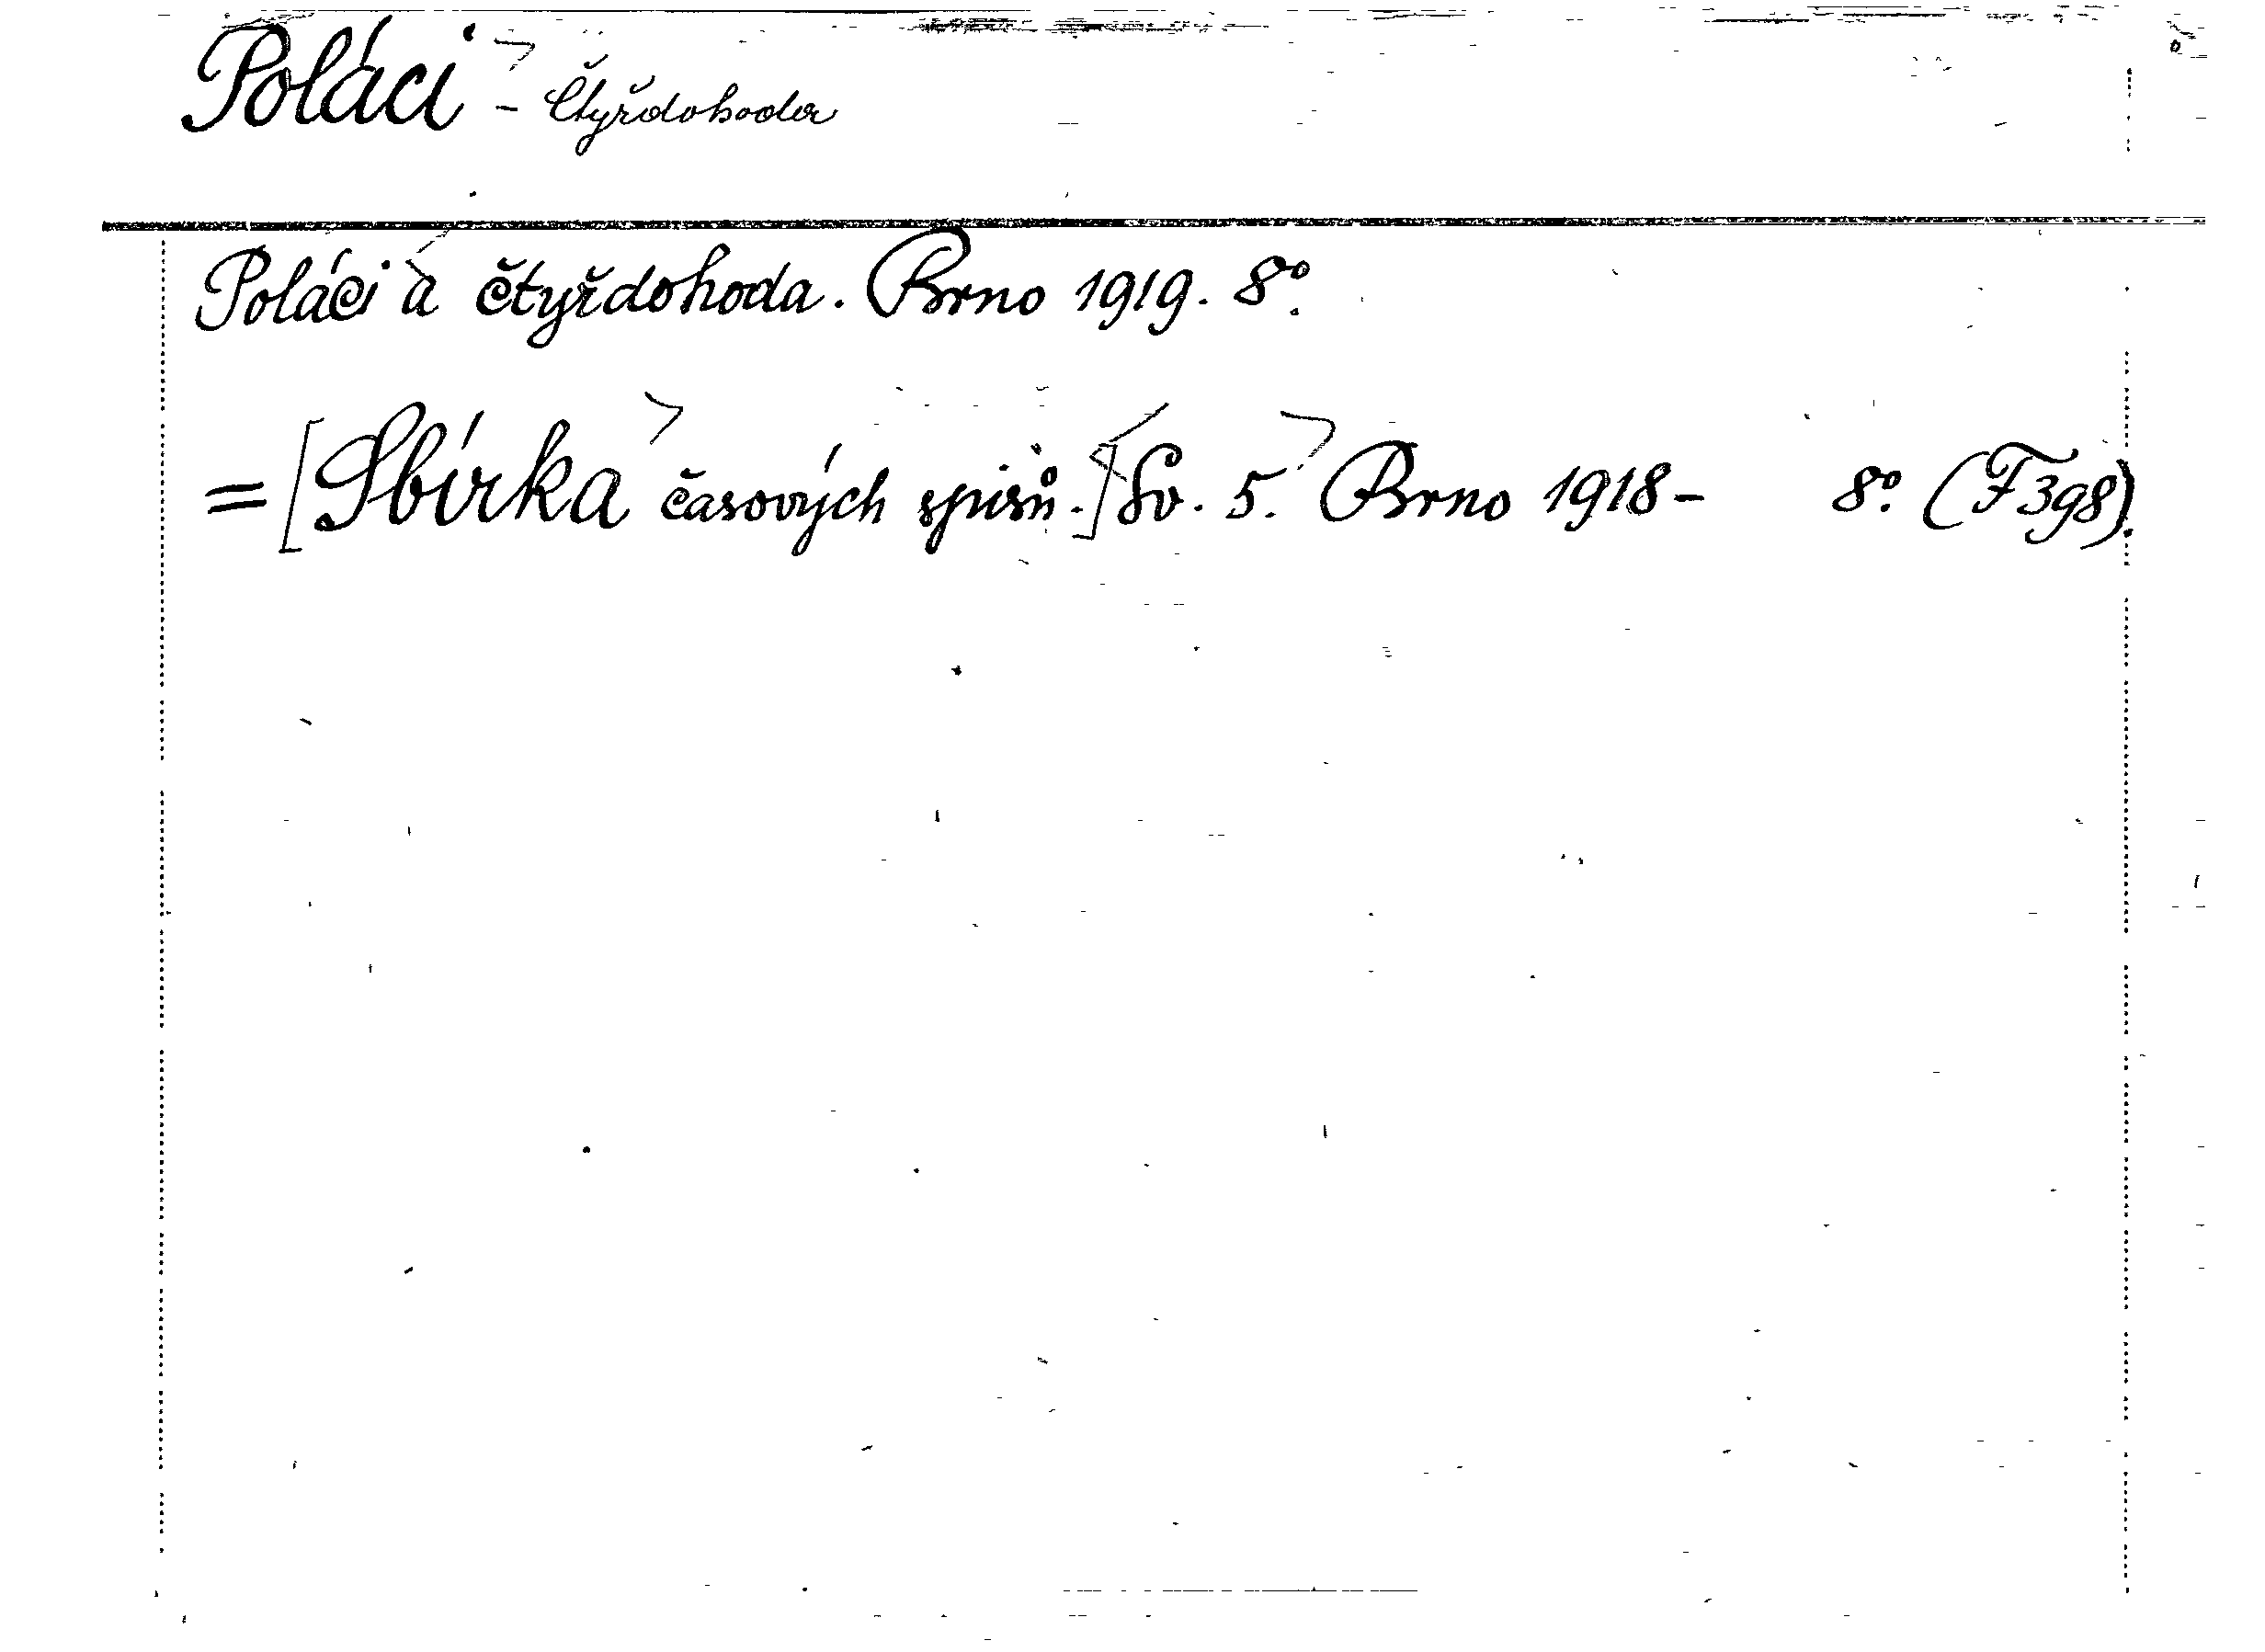 Poláci - Čtyřdohoda
Poláci a čtyřdohoda. Brno 1919. 8°.
= [Sbírka časových spisů.] Sv. 5. Brno 1918- 8°. (F398).